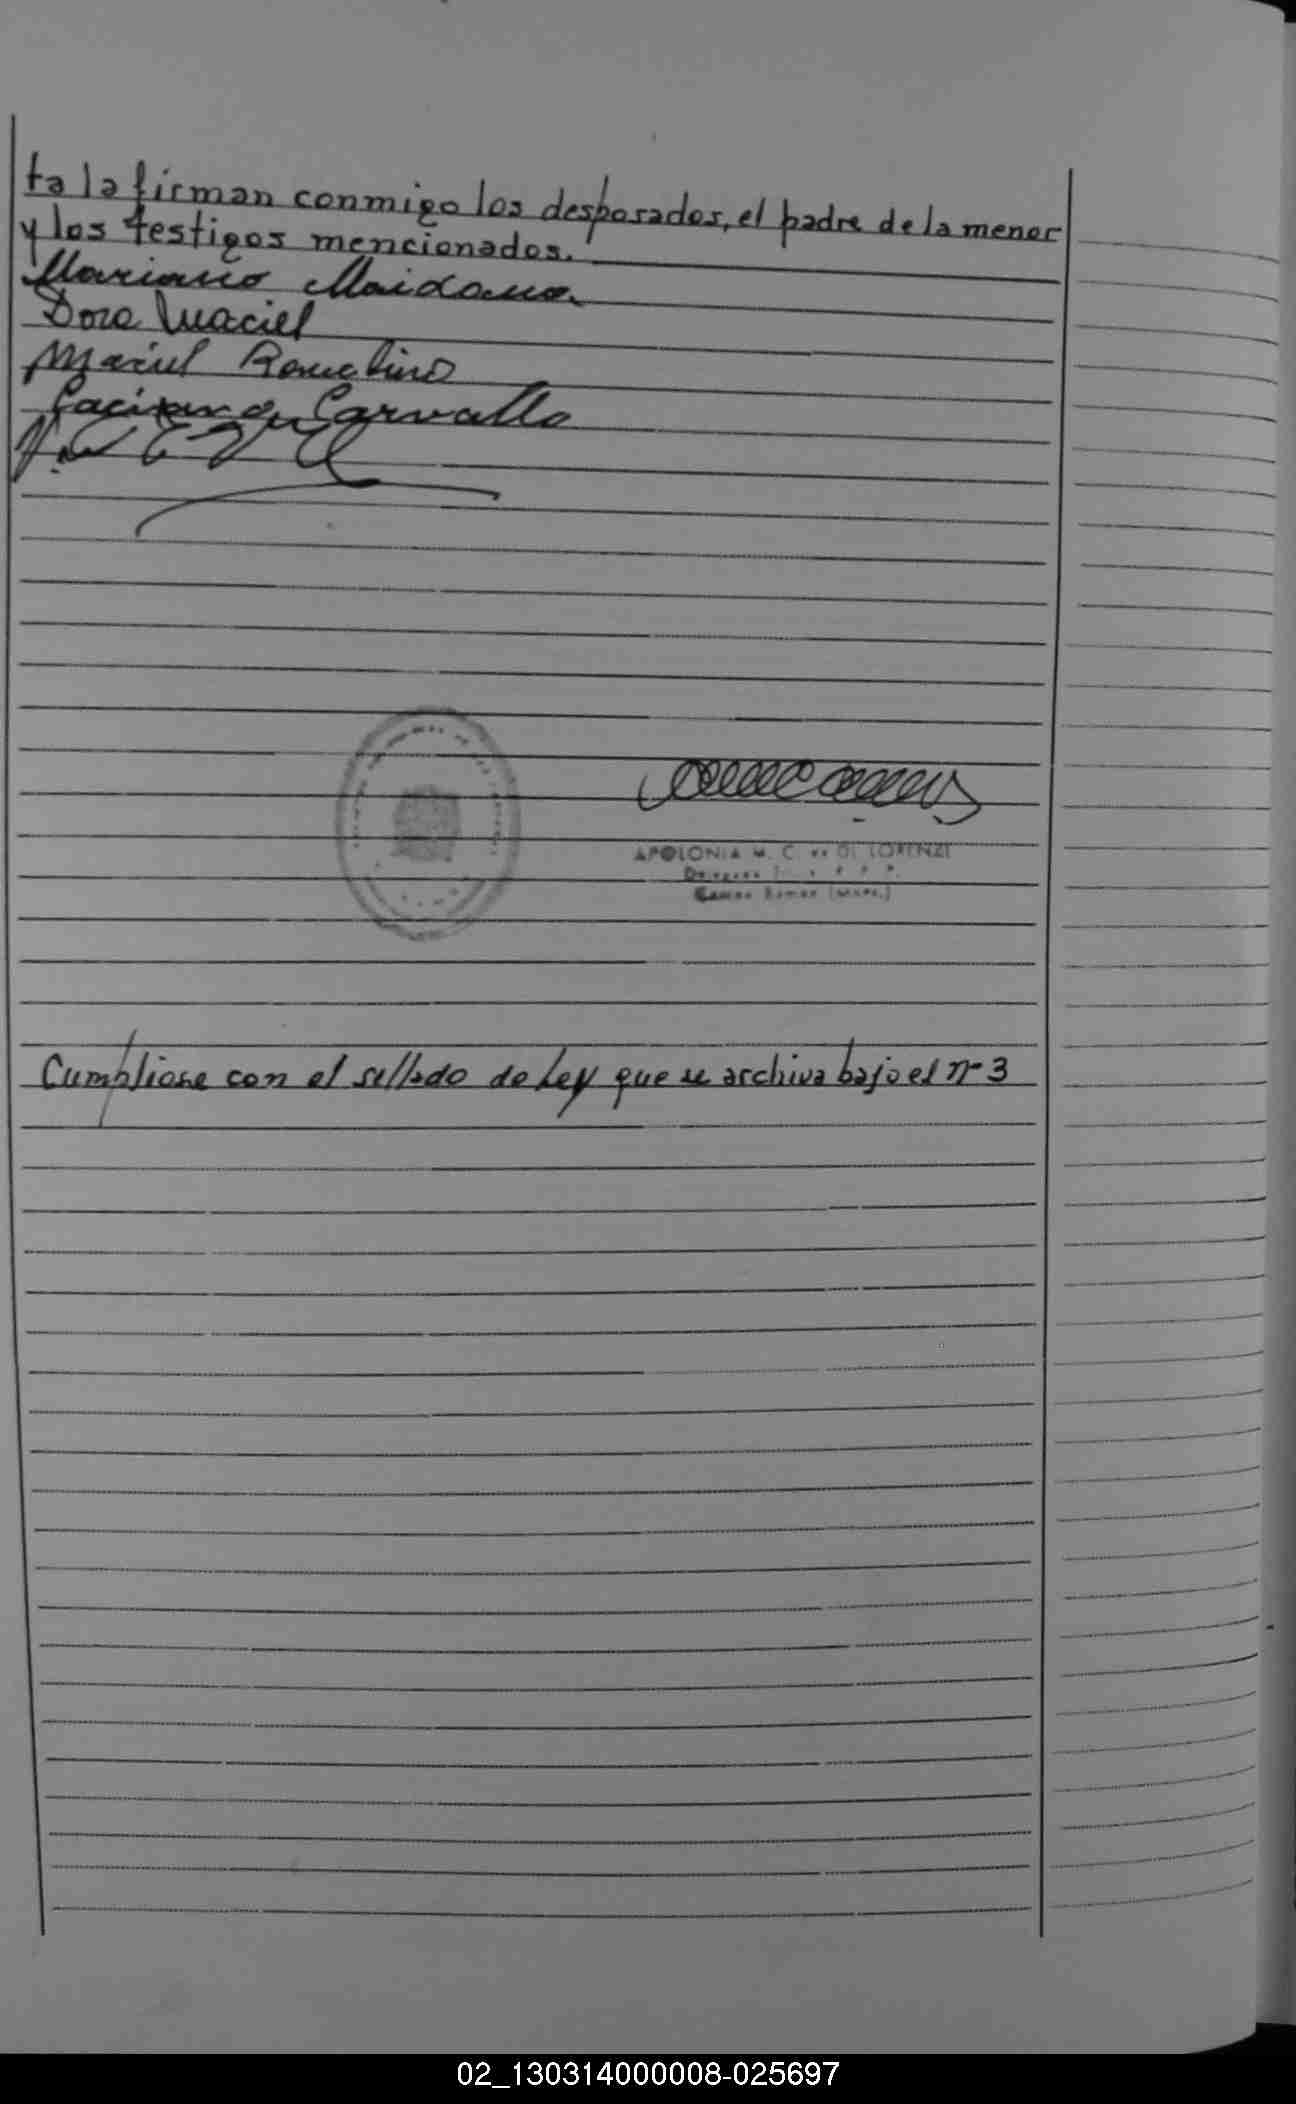 ta la firman conmigo los desposados, el padre de la menor
y los testigos mencionados.
Mariano Maidana
Dora Maciel
Marcel
Carvallo
APOLONIA M. C. DE DI LORENZI
Cumpliose con el sellado de Ley que se archiva bajo el nº 3
02_130314000008-025697